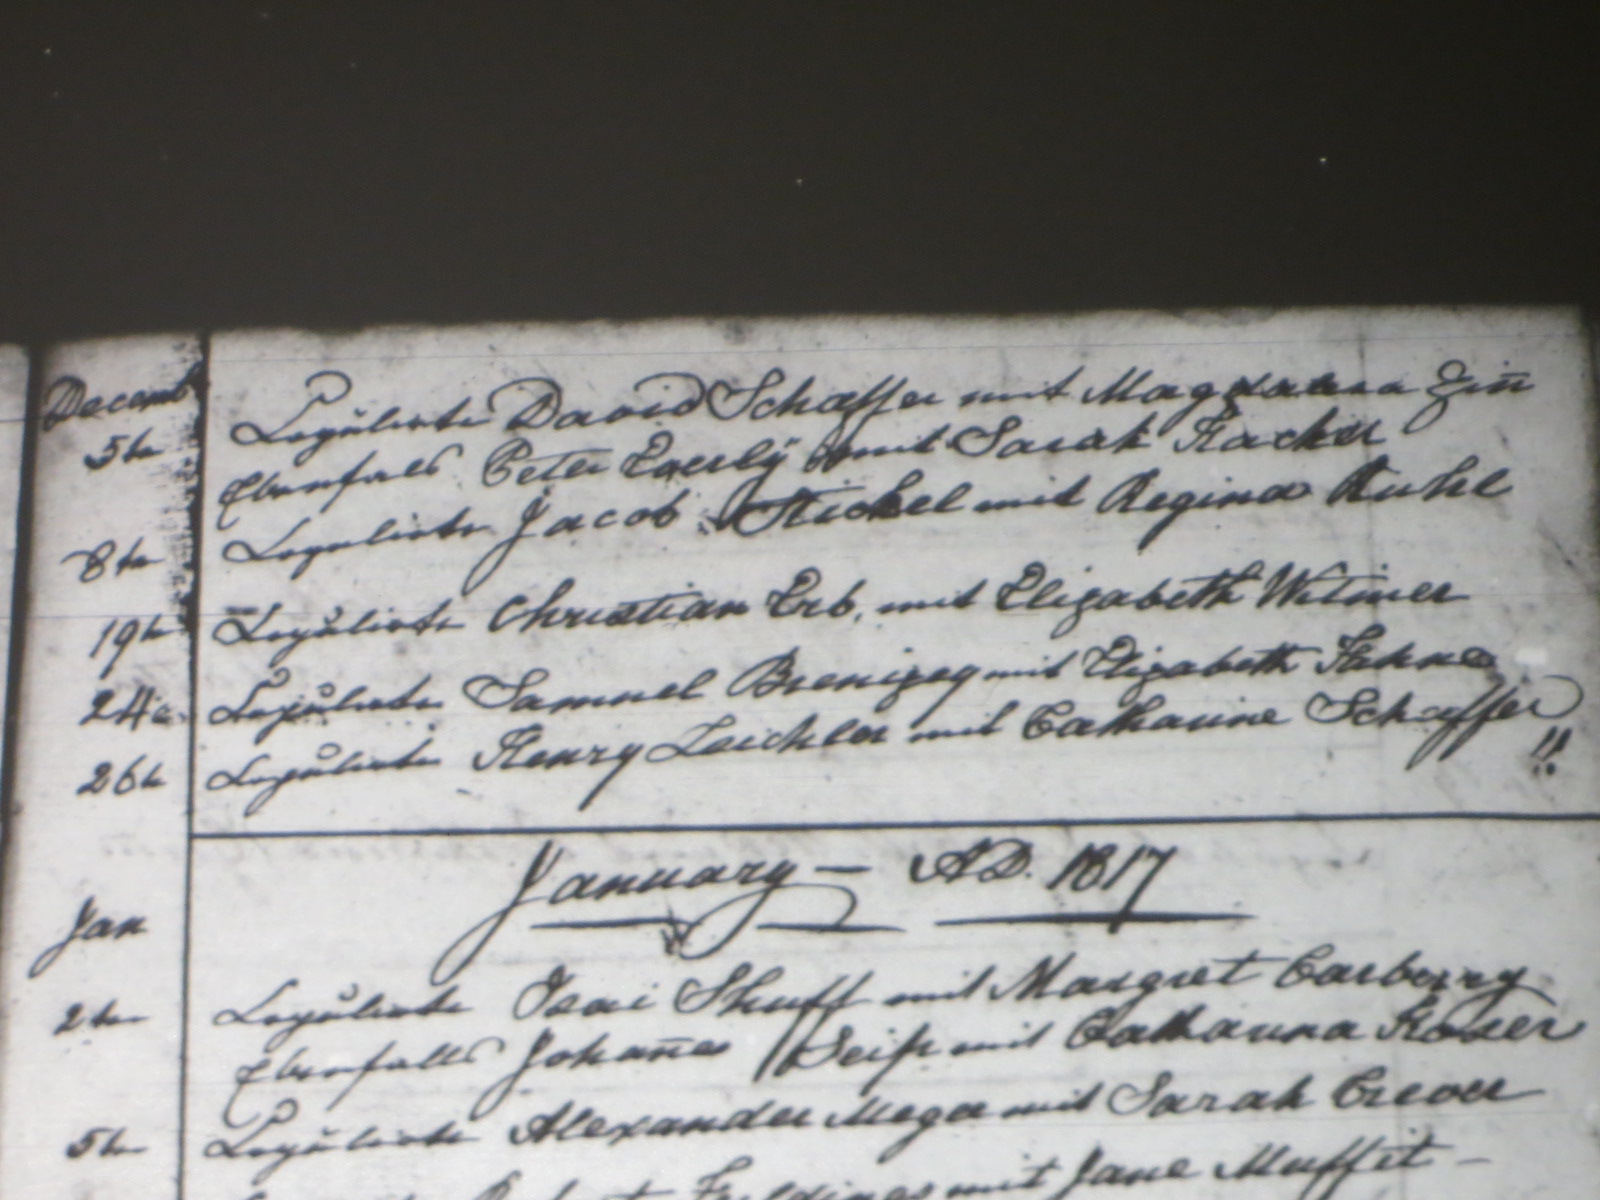 Decemb
5te Copulirte David Schaffer mit Magdalena Zin̄
Ebenfals Peter Everly mit Sarah Hacker
8te Copulirte Jacob Stickel mit Regina Ruhl
19te Copulirte Christian Erb, mit Elizabeth Witmer
24te Copulirte Samuel mit Elizabeth
26te Copulirte Henry Leichler mit Catharine Schaffer
!!
January — AD. 1817
Jan
2te Copulirte Isai Shuff mit Margret Carberry
Ebenfalls Johan̄es Seip mit Catharina
5te Copulirte Alexander mit Sarah Crever
mit Jane Muffit —